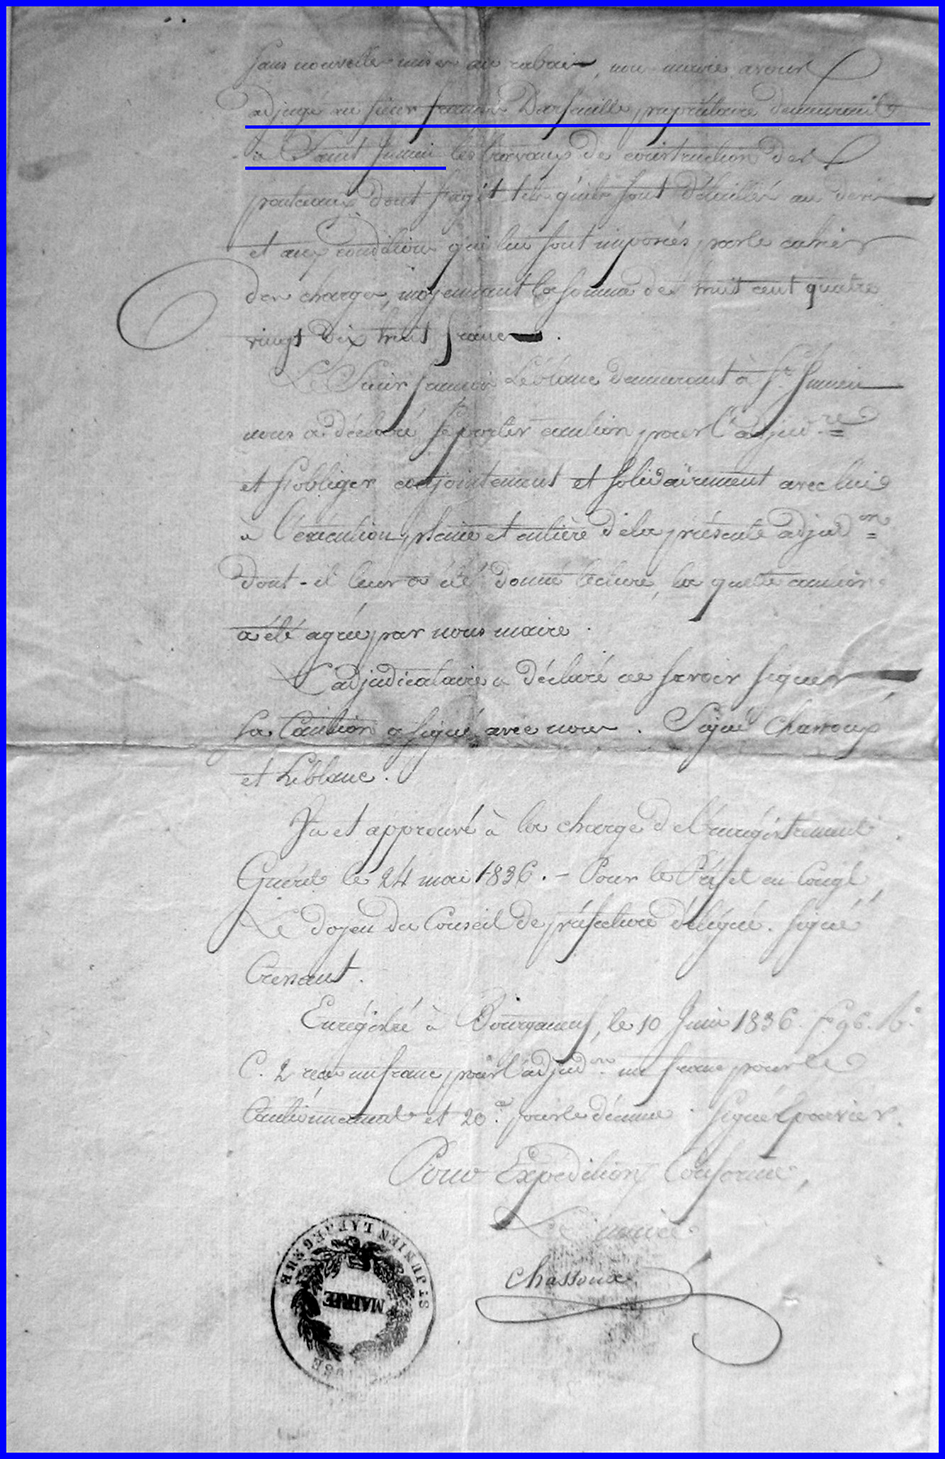 sans nouvelle mise au rabais, nous maire avons
adjugé au sieur Darfeuille propriétaire demeurant
à Saint Junien les travaux de construction des
ponteaux dont s'agit tels qu'ils sont détaillés au devis
et aux conditions qui lui sont imposées par le cahier
des charges, moyennant la somme de huit cent quatre
vingt dix huit francs.
Le Sieur françois Leblanc demeurant à St. Junien
nous a déclaré se porter caution pour l'adjud.re
et s'obliger conjointement et solidairement avec lui
à l'exécution pleine et entière de la présente adjud.on
dont il leur a été donné lecture, la quelle caution
a été agréé par nous maire.
L'adjudicataire a déclaré ne savoir signer
la Caution a signé avec nous. Signé Chassoux
et Leblanc.
Vu et approuvé à la charge de l'enregistrement
Guéret le 24 mai 1836. - Pour le Préfet en Congé,
Le doyen du Conseil de préfecture délégué. signé
Enregistré à Bourganeuf, le 10 Juin 1836. f. 96. Vo.
C. 2 reçu un franc pour l'adjud.on un franc pour le
Cautionnement et 20 c. pour le décime. Signé
Pour Expédition Conforme,
Le maire
Chassoux
ST JUNIEN LABREGERE
MAIRIE
CREUSE